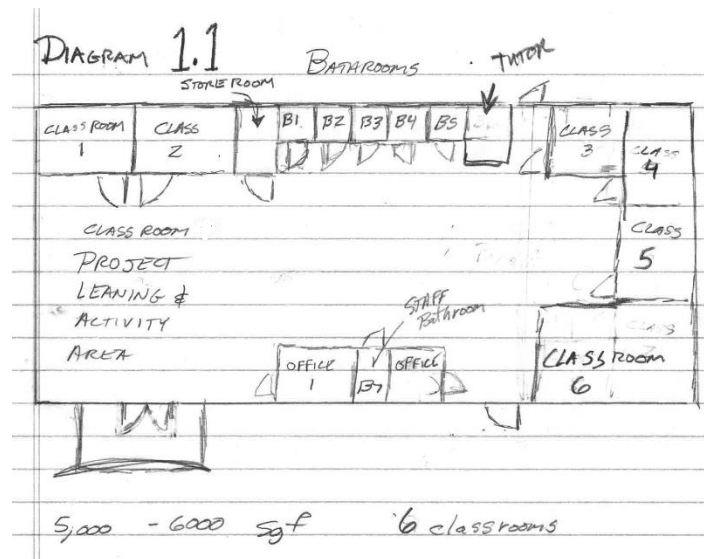 DIAGRAM 1.1
BATAROOMS
TUTOR
STORE ROOM
CLASSROOM
1
CLASS
2
B1
B2
B3
B4
B5
CLASS
3
CLASS
4
CLASS ROOM
PROJECT
LEANING &
ACTIVITY
AREA
CLASS
5
STAFF
Bathroom
OFFICE
1
B7
OFFICE
CLASS ROOM
6
5,000 - 6000 sqf 6 classrooms